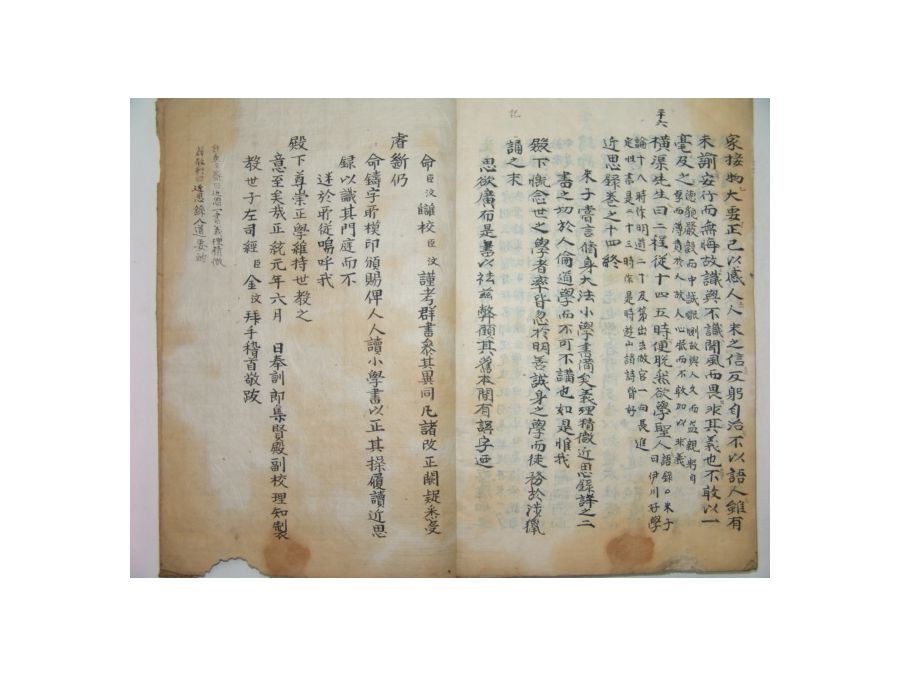 家接物大要正己以感人人未之信反躬自治不以語人雖有
未諭安行而無悔故識與不識聞風而畏非其義也不敢以一
毫及之
二十六
橫渠先生曰二程從十四五時便脫然欲學聖人
語錄○朱子曰伊川好學
論十八時作明道二十及第出去做官一向長進
定性書是二十三時作是時遊山諸詩皆好
近思錄卷之十四終
朱子嘗言修身大法小學書備矣義理精微近思錄詳之二
書之切於人倫道學而不可不講也如是惟我
殿下慨念世之學者率皆忽於明善誠身之學而徒務於涉獵
誦之末
思欲廣布是書以祛玆弊顧其舊本間有誤字迺
命臣汶讎校臣汶謹考群書參其異同凡諸改正闕疑悉受
睿斷仍
命鑄字所模印頒賜俾人人讀小學書以正其操履讀近思
錄以識其門庭而不
迷於所從嗚呼我
殿下尊崇正學維持世教之
意至矣哉正統元年六月 日奉訓郎集賢殿副校理知製
教世子左司經臣金汶拜手稽首敬跋